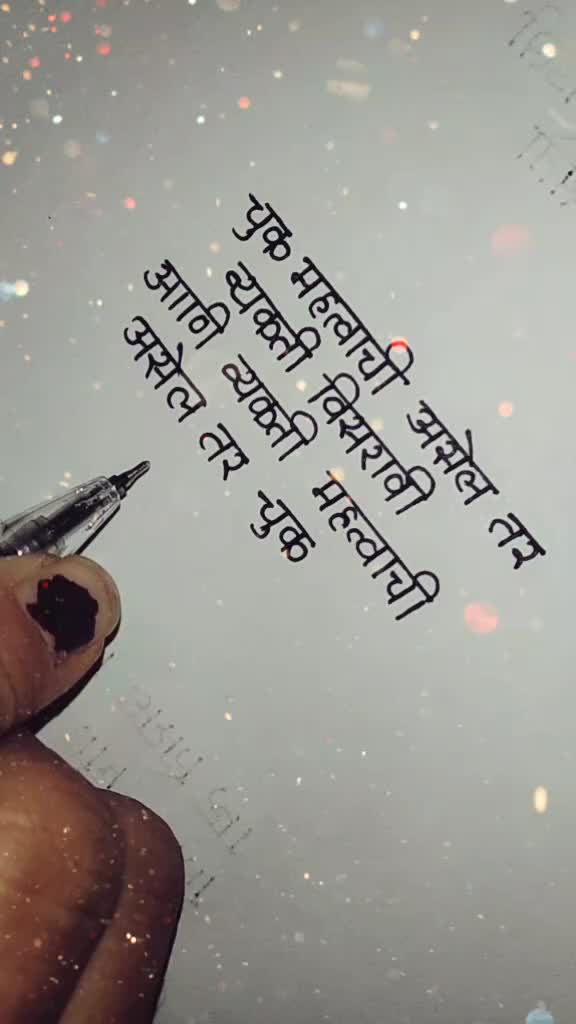 चुक महत्वाची असेल तर
व्यक्ती विसरावी
आणि व्यक्ती महत्वाची
असेल तर चुक